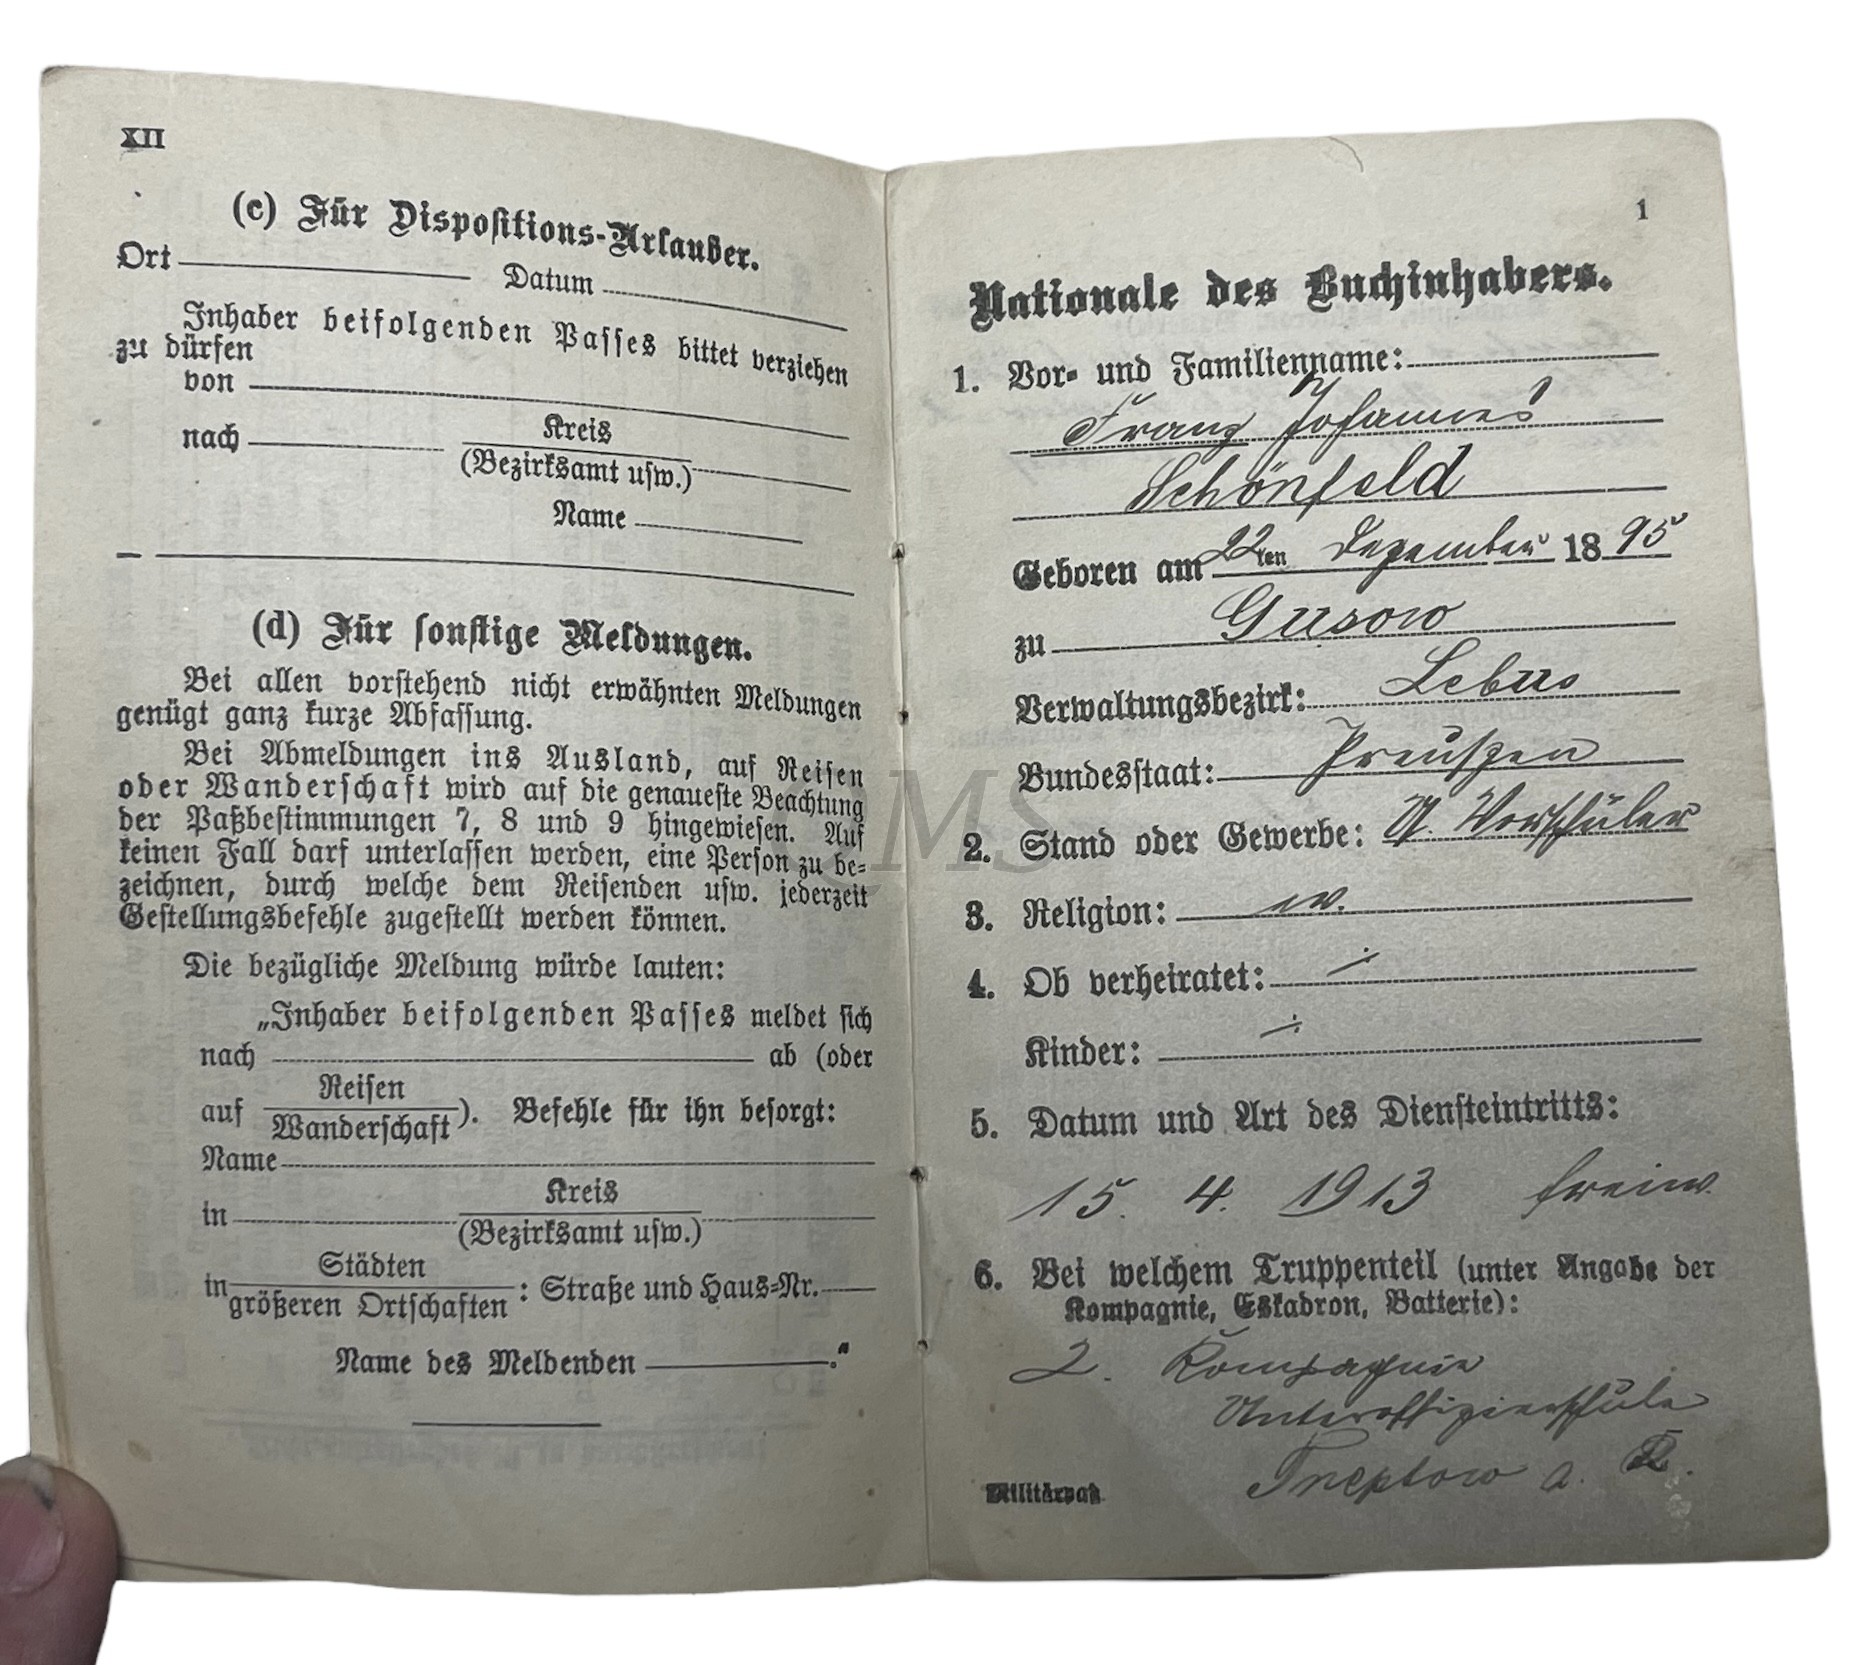 XII
(c) Für Dispositions-Urlauber.
Ort Datum
Inhaber beifolgenden Passes bittet verziehen
zu dürfen
von
nach Kreis
(Bezirksamt usw.)
Name
(d) Für sonstige Meldungen.
Bei allen vorstehend nicht erwähnten Meldungen
genügt ganz kurze Abfassung.
Bei Abmeldungen ins Ausland, auf Reisen
oder Wanderschaft wird auf die genaueste Beachtung
der Paßbestimmungen 7, 8 und 9 hingewiesen. Auf
keinen Fall darf unterlassen werden, eine Person zu be-
zeichnen, durch welche dem Reisenden usw. jederzeit
Gestellungsbefehle zugestellt werden können.
Die bezügliche Meldung würde lauten:
„Inhaber beifolgenden Passes meldet sich
nach ab (oder
auf Reisen
Wanderschaft). Befehle für ihn besorgt:
Name
in Kreis
(Bezirksamt usw.)
in Städten
größeren Ortschaften : Straße und Haus-Nr.
Name des Meldenden ."
1
Nationale des Buchinhabers.
1. Vor- und Familienname:
Franz Johannes
Schönfeld
Geboren am 22ten Dezember 1895
zu Gusow
Verwaltungsbezirk: Lebus
Bundesstaat: Preußen
2. Stand oder Gewerbe: U. Vorschüler
3. Religion: ev.
4. Ob verheiratet: ./.
Kinder: ./.
5. Datum und Art des Diensteintritts:
15. 4. 1913 freiw.
6. Bei welchem Truppenteil (unter Angabe der
Kompagnie, Eskadron, Batterie):
2. Kompagnie
Unteroffizierschule
Treptow a. R.
Militärpaß
QMS